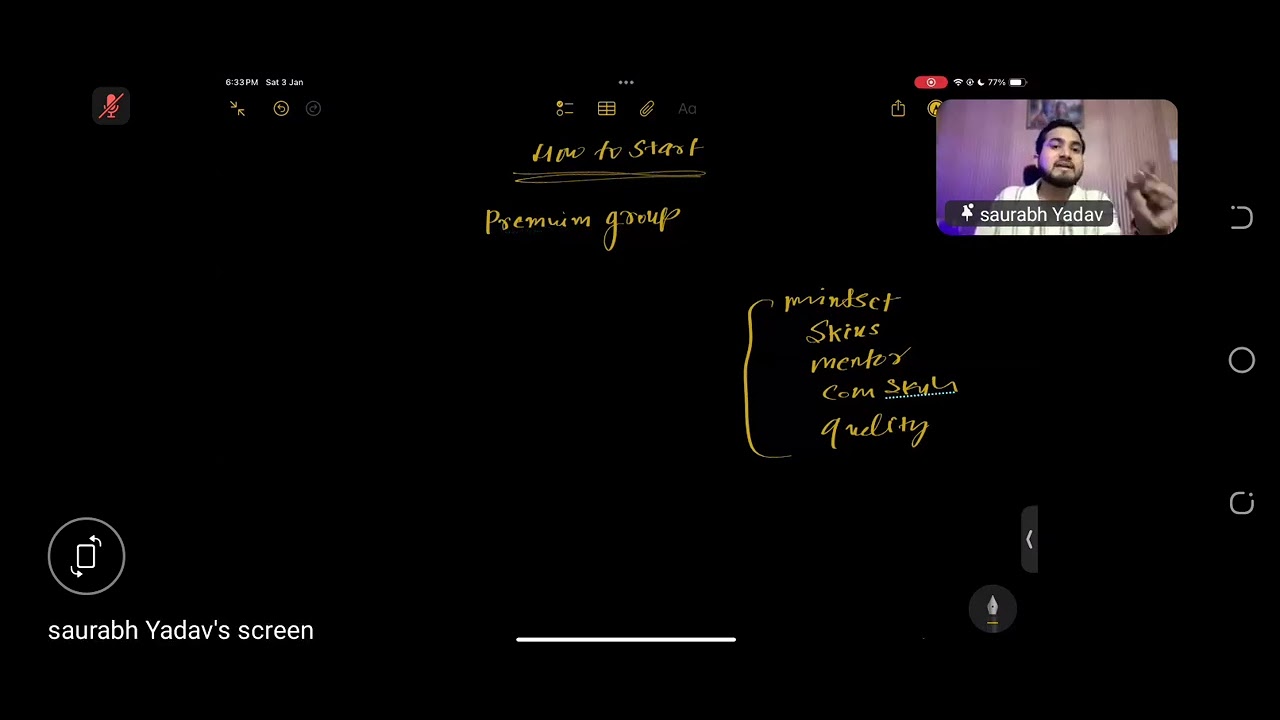 6:33 PM Sat 3 Jan
77%
Aa
How to Start
Premium group
saurabh Yadav
mindset
Skills
mentor
com skills
quality
saurabh Yadav's screen